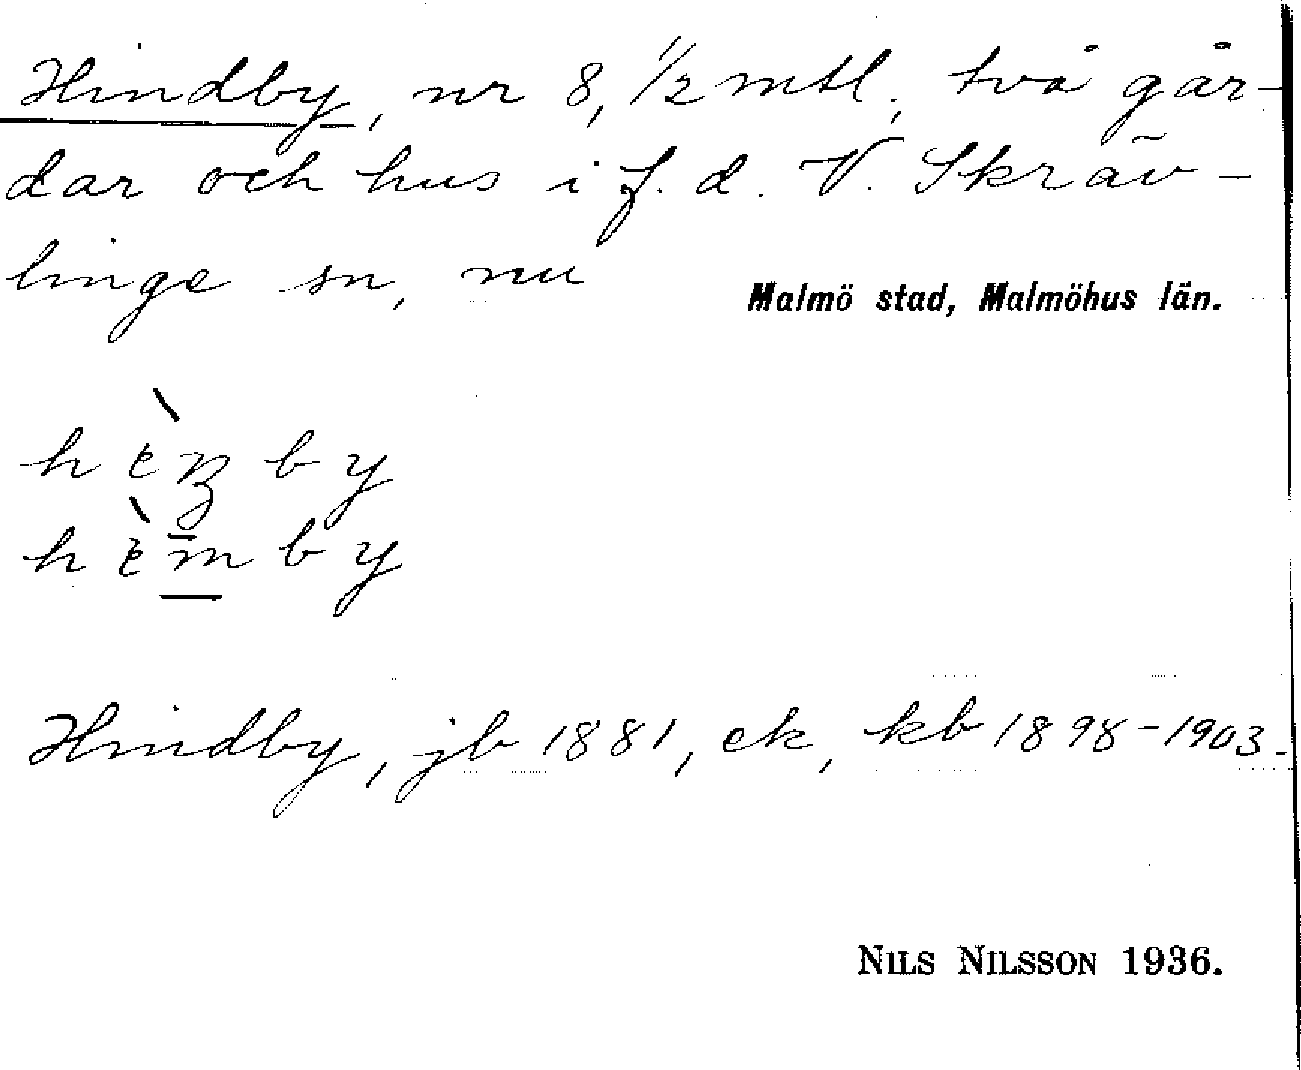 Hindby, nr 8, 1/2 mtl.; två går-
dar och hus i f. d. V. Skräv-
linge sn, nu
Malmö stad, Malmöhus län.
Hindby, jb 1881, ek, kb 1898-1903.
NILS NILSSON 1936.